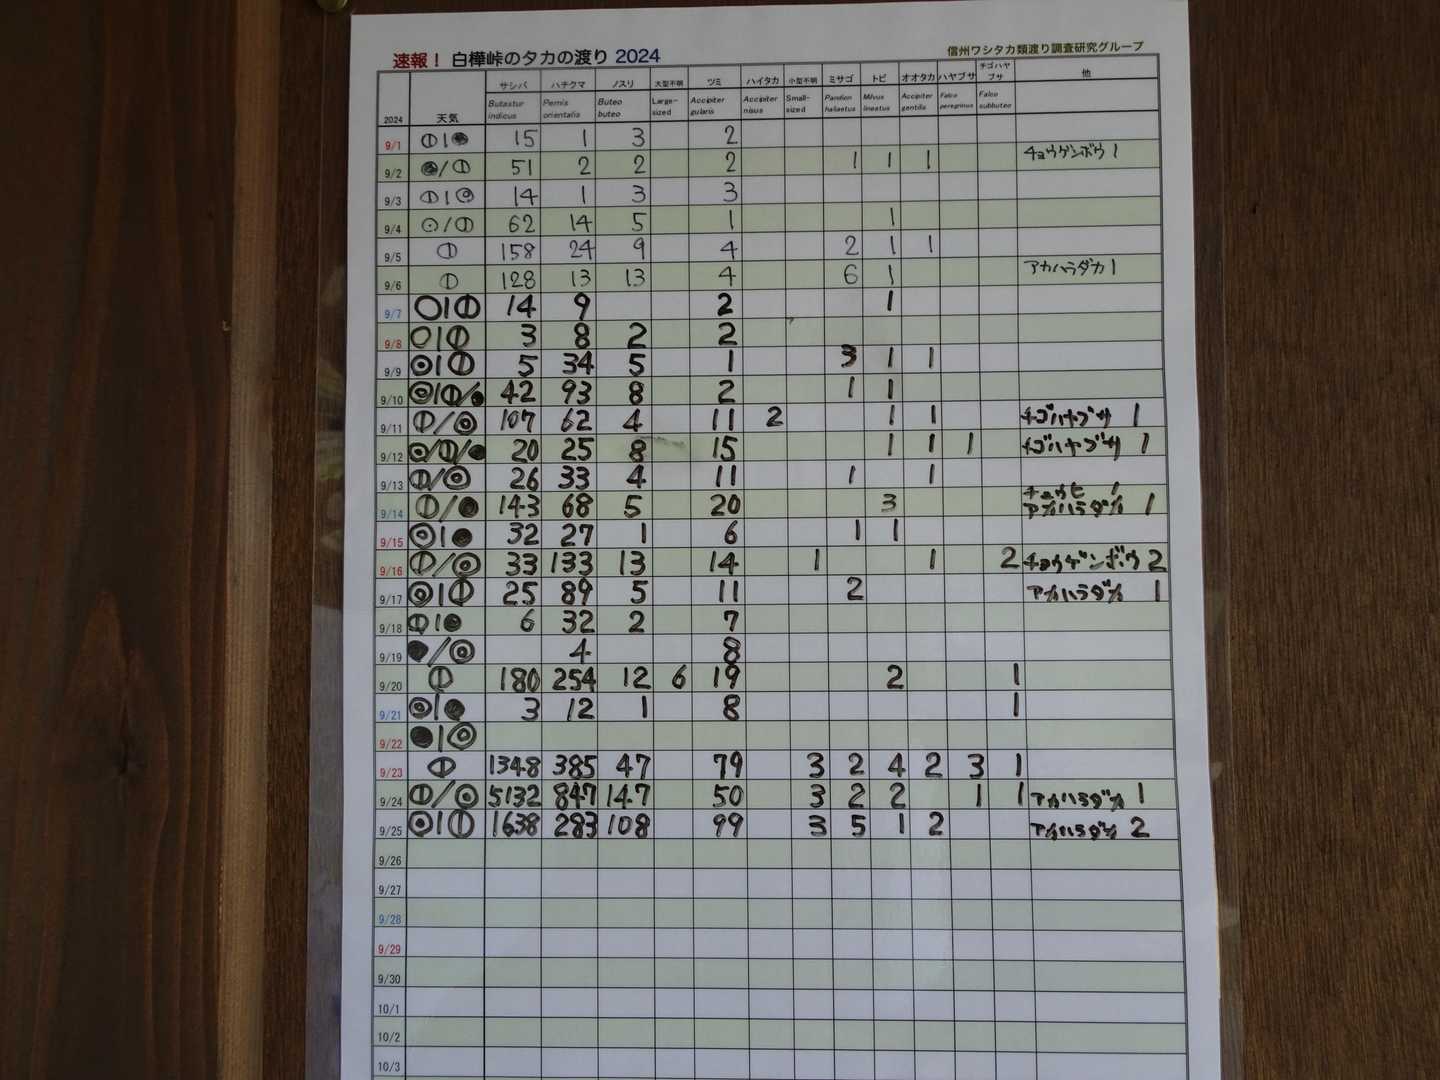 速報！ 白樺峠のタカの渡り 2024 信州ワシタカ類渡り調査研究グループ
2024 天気 サシバ ハチクマ ノスリ 大型不明 ツミ ハイタカ 小型不明 ミサゴ トビ オオタカ ハヤブサ チゴハヤブサ 他
Butastur indicus Pernis orientalis Buteo buteo Large-sized Accipiter gularis Accipiter nisus Small-sized Pandion haliaetus Milvus lineatus Accipiter gentilis Falco peregrinus Falco subbuteo
9/1 15 1 3 2
9/2 51 2 2 2 1 1 1 チョウゲンボウ 1
9/3 14 1 3 3
9/4 62 14 5 1 1
9/5 158 24 9 4 2 1 1
9/6 128 13 13 4 6 1 アカハラダカ 1
9/7 14 9 2 1
9/8 3 8 2 2
9/9 5 34 5 1 3 1 1
9/10 42 93 8 2 1 1
9/11 107 62 4 11 2 1 1 チゴハヤブサ 1
9/12 20 25 8 15 1 1 1 チゴハヤブサ 1
9/13 26 33 4 11 1 1
9/14 143 68 5 20 3 チュウヒ 1 アカハラダカ 1
9/15 32 27 1 6 1 1
9/16 33 133 13 14 1 1 2 チョウゲンボウ 2
9/17 25 89 5 11 2 アカハラダカ 1
9/18 6 32 2 7
9/19 4 8
9/20 180 254 12 6 19 2 1
9/21 3 12 1 8 1
9/22
9/23 1348 385 47 79 3 2 4 2 3 1
9/24 5132 847 147 50 3 2 2 1 1 アカハラダカ 1
9/25 1638 283 108 99 3 5 1 2 アカハラダカ 2
9/26
9/27
9/28
9/29
9/30
10/1
10/2
10/3